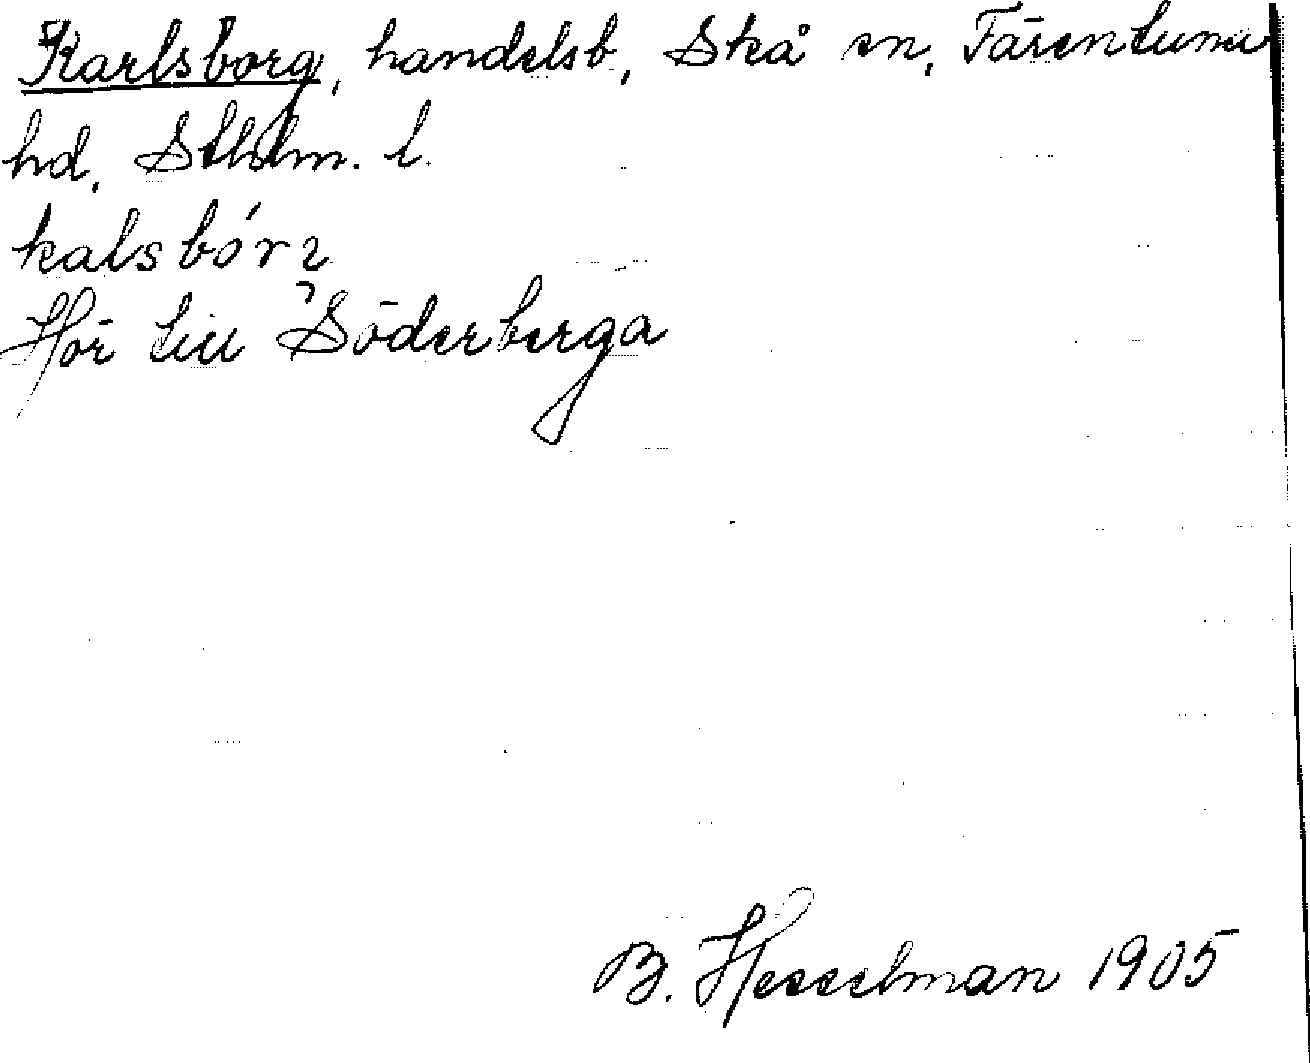 Karlsborg, handelsb, Skå sn, Färentuna
hd, Sthlm. l.
kalsbórɂ
Hör till Söderberga
B. Hesselman 1905